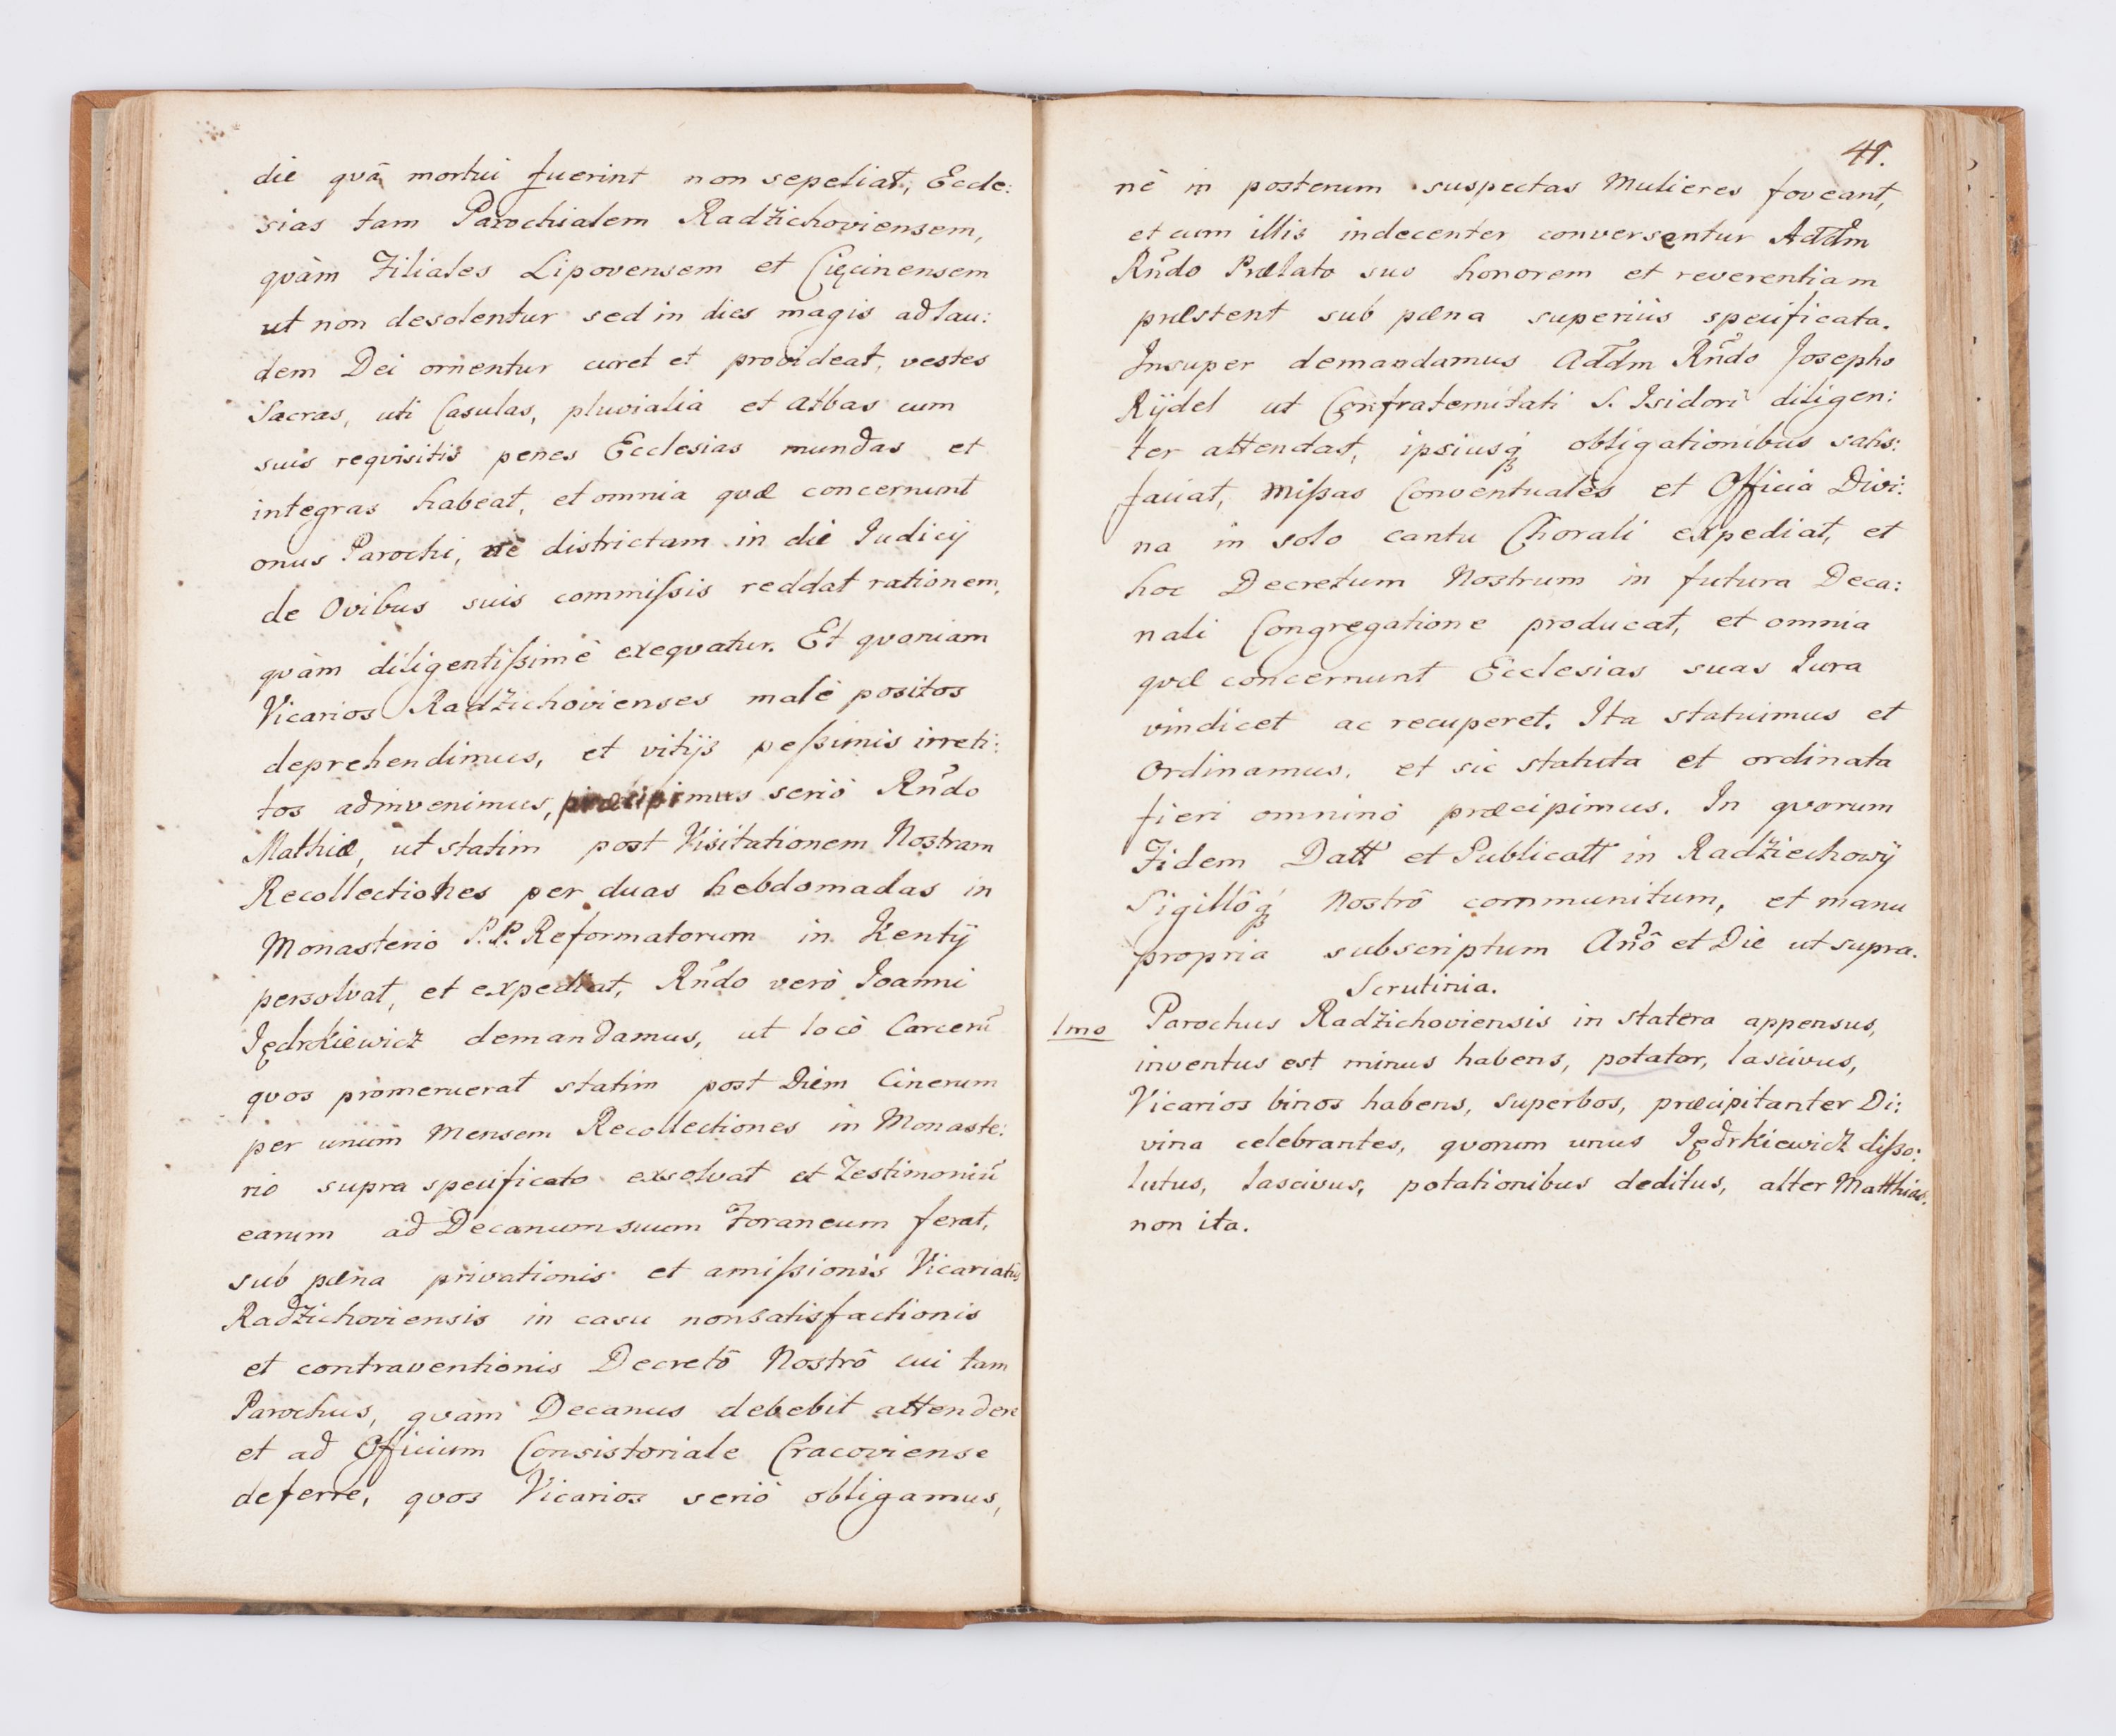 die quâ mortui fuerint non sepeliat, Eccle:
sias tam Parochialem Radźichoviensem,
quàm Filiales Lipovensem et Cięcinensem
ut non desolentur sed in dies magis ad lau:
dem Dei ornentur curet et provideat, vestes
Sacras, uti Casulas, pluvialia et Albas cum
suis requisitis penes Ecclesias mundas et
integras habeat, et omnia quæ concernunt
onus Parochi, nè districtam in die Iudicij
de Ovibus suis commißis reddat rationem,
quàm diligentißimè exequatur. Et quoniam
Vicarios Radźichovienses malè positos
deprehendimus, et vitijs peßimis irreti:
tos adinvenimus, præcipimus seriò Rñdo
Mathiæ, ut statim post Visitationem Nostram
Recollectiones per duas hebdomadas in
Monasterio P.P. Reformatorum in Kentÿ
persolvat, et expediat, Rñdo verò Ioanni
Jędrkiewicz demandamus, ut locò Carcerũ
quos promeruerat statim post Diem Cinerum
per unum Mensem Recollectiones in Monaste:
rio supra specificato exsolvat et Testimoniũ
earum ad Decanum suum Foraneum ferat,
sub pæna privationis et amißionis Vicariatus
Radźichoviensis in casu nonsatisfactionis
et contraventionis Decretô Nostrô cui tam
Parochus, quàm Decanus debebit attendere
et ad Officium Consistoriale Cracoviense
deferre, quos Vicarios seriò obligamus,
41.
nè in posterum suspectas Mulieres foveant,
et cum illis indecenter conversentur Addm
Rñdo Prælato suo honorem et reverentiam
præstent sub pæna superiùs specificata.
Insuper demandamus Addm Rñdo Josepho
Rÿdel ut Confraternitati S. Isidori diligen:
ter attendat, ipsiusq́ obligationibus satis:
faciat, Mißas Conventuales et Officia Divi:
na in solo cantu Chorali expediat, et
hoc Decretum Nostrum in futura Deca:
nali Congregatione producat, et omnia
quæ concernunt Ecclesias suas Iura
vindicet ac recuperet. Ita statuimus et
Ordinamus, et sic statuta et ordinata
fieri omninò præcipimus. In quorum
Fidem Datt et Publicatt in Radźiechowÿ
Sigillôq́ Nostrô communitum, et manu
propria subscriptum Añô et Die ut supra.
Scrutinia.
1mo Parochus Radźichoviensis in statera appensus,
inventus est minus habens, potator, lascivus,
Vicarios binos habens, superbos, præcipitanter Di:
vina celebrantes, quorum unus Jędrkiewicz dißo:
lutus, lascivus, potationibus deditus, alter Matthias
non ita.